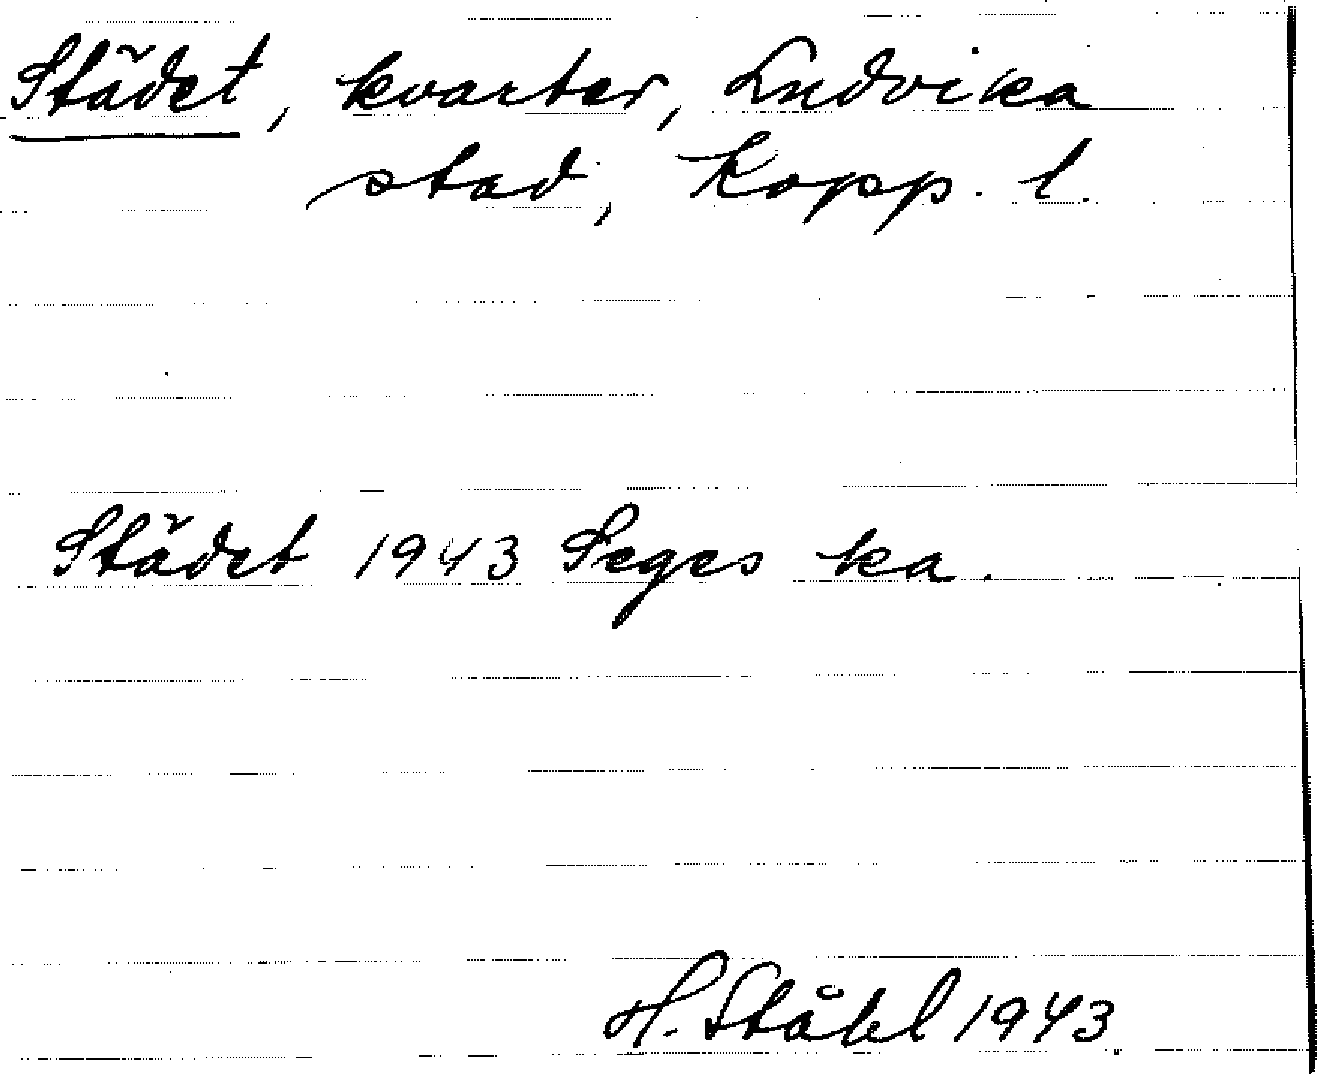 Städet, kvarter, Ludvika
stad, Kopp. l.
Städet 1943 Seges ka.
H. Ståhl 1943